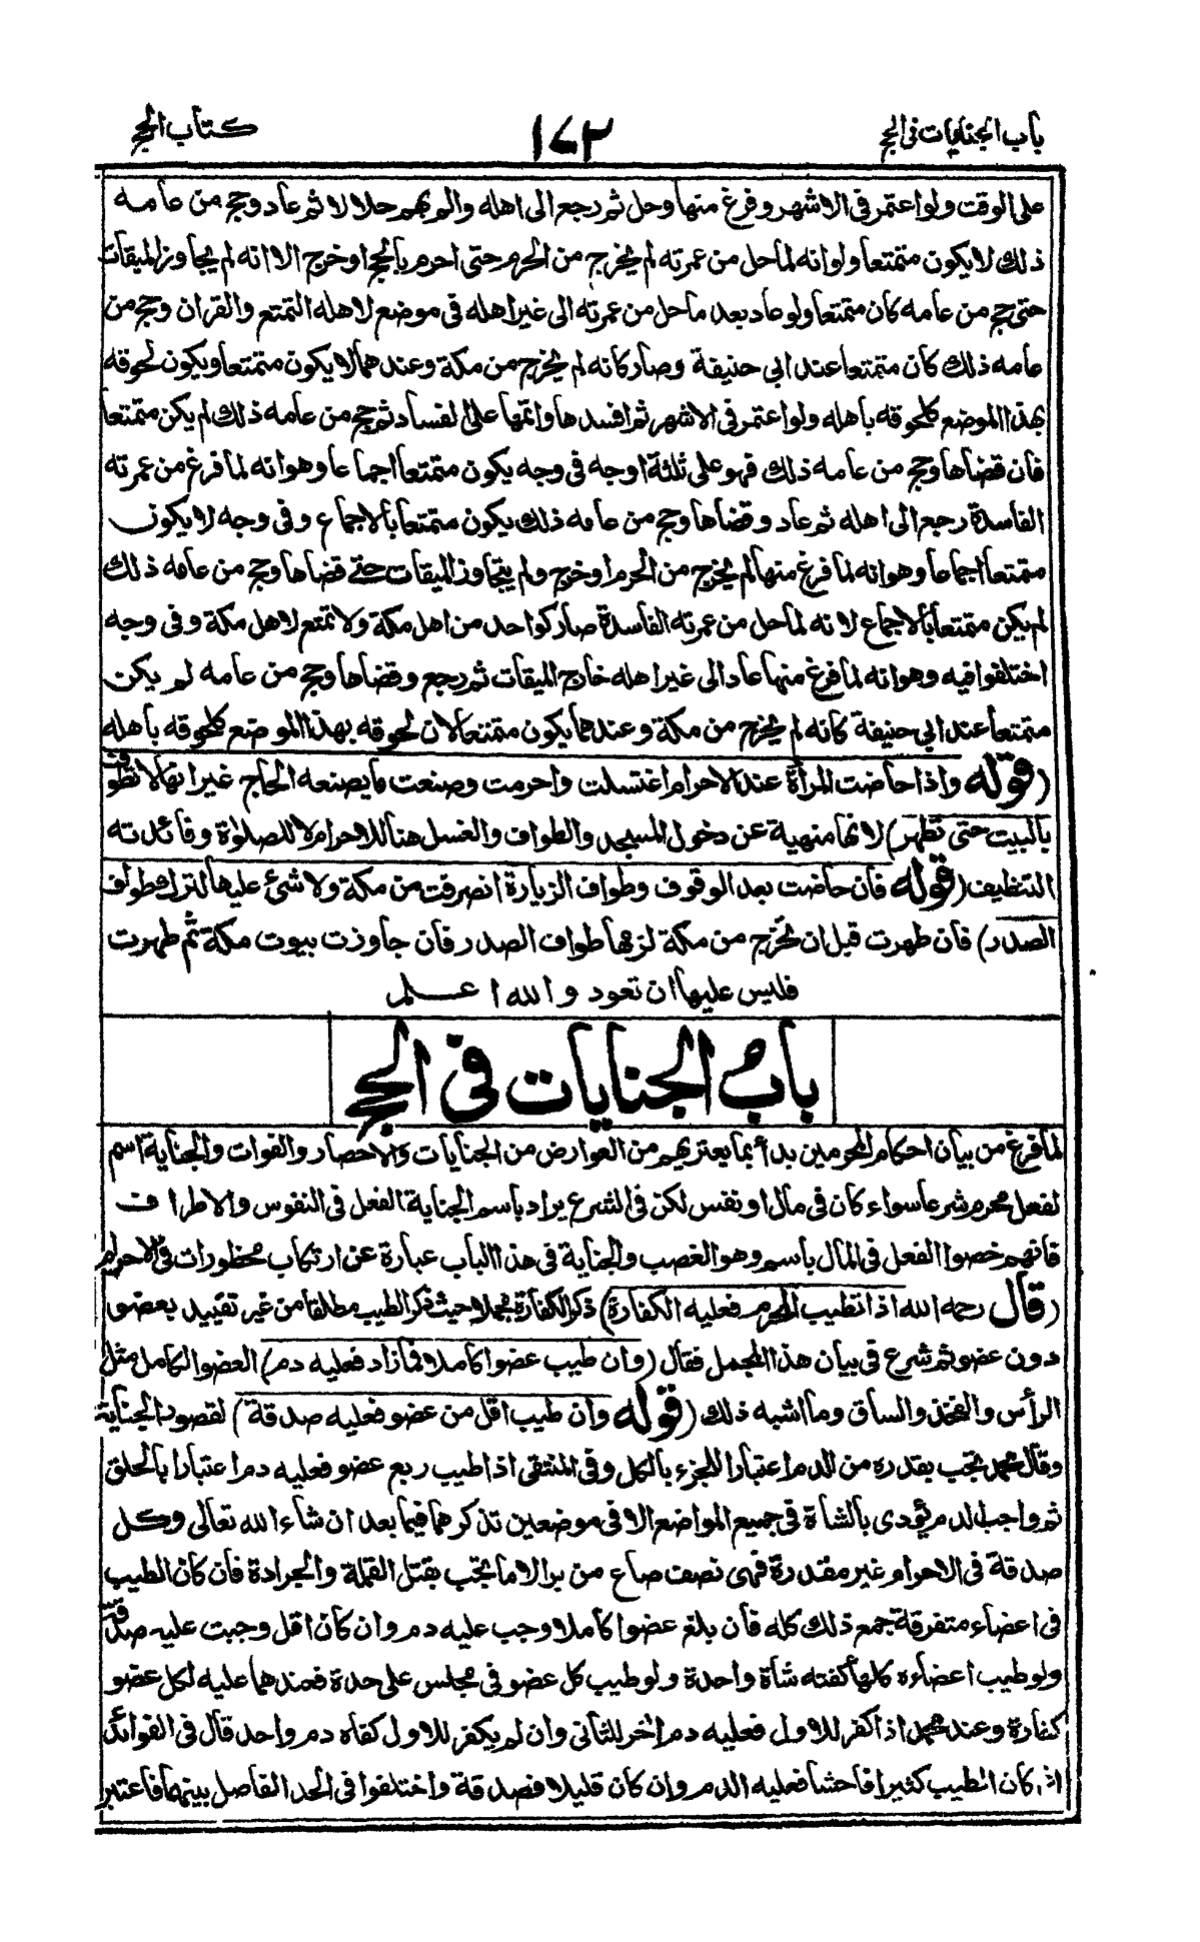 باب الجنايات فى الحج ١٧٢ كتاب الحج
على الوقت ولو اعتمر فى الاشهر وفرغ منها وحل ثم رجع الى اهله والم بهم حلالا ثم عاد وحج من عامه
ذلك لا يكون متمتعا ولو انه لما حل من عمرته لم يخرج من الحرم حتى احرم بالحج او خرج الا انه لم يجاوز الميقات
حتى حج من عامه كان متمتعا ولو عاد بعد ما حل من عمرته الى غير اهله فى موضع لاهله التمتع والقران وحج من
عامه ذلك كان متمتعا عند ابى حنيفة وصار كانه لم يخرج من مكة وعندهما لا يكون متمتعا ويكون لحوقه
بهذا الموضع كلحوقه باهله ولو اعتمر فى الاشهر ثم افسدها واتمها على الفساد ثم حج من عامه ذلك لم يكن متمتعا
فان قضاها وحج من عامه ذلك فهو على ثلثة اوجه فى وجه يكون متمتعا اجماعا وهو انه لما فرغ من عمرته
الفاسدة رجع الى اهله ثم عاد وقضاها وحج من عامه ذلك يكون متمتعا بالاجماع وفى وجه لا يكون
متمتعا اجماعا وهو انه لما فرغ منها لم يخرج من الحرم او خرج ولم يتجاوز الميقات حتى قضاها وحج من عامه ذلك
لم يكن متمتعا بالاجماع لانه لما حل من عمرته الفاسدة صار كواحد من اهل مكة ولا تمتع لاهل مكة وفى وجه
اختلفوا فيه وهو انه لما فرغ منها عاد الى غير اهله خارج الميقات ثم رجع وقضاها وحج من عامه لم يكن
متمتعا عند ابى حنيفة كانه لم يخرج من مكة وعندهما يكون متمتعا لان لحوقه بهذا الموضع كلحوقه باهله
(قوله واذا حاضت المرأة عند الاحرام اغتسلت واحرمت وصنعت ما يصنعه الحاج غير انها لا تطوف
بالبيت حتى تطهر) لانها منهية عن دخول المسجد والطواف والغسل هنا للاحرام لا للصلوة وفائدته
التنظيف (قوله فان حاضت بعد الوقوف وطواف الزيارة انصرفت من مكة ولا شئ عليها لترك طواف
الصدر) فان طهرت قبل ان تخرج من مكة لزمها طواف الصدر فان جاوزت بيوت مكة ثم طهرت
فليس عليها ان تعود والله اعلم
باب الجنايات فى الحج
لما فرغ من بيان احكام المحرمين بدأ بما يعتريهم من العوارض من الجنايات والاحصار والفوات والجناية اسم
لفعل محرم شرعا سواء كان فى مال او نفس لكن فى الشرع يراد باسم الجناية الفعل فى النفوس والاطراف
فانهم خصوا الفعل فى المال باسم وهو الغصب والجناية فى هذا الباب عبارة عن ارتكاب محظورات فى الاحرام
(قال رحمه الله اذا تطيب المحرم فعليه الكفارة) ذكر الكفارة مجملا حيث ذكر الطيب مطلقا من غير تقييد بعضو
دون عضو ثم شرع فى بيان هذا المجمل فقال (وان طيب عضوا كاملا فما زاد فعليه دم) العضو الكامل مثل
الرأس والفخذ والساق وما اشبه ذلك (قوله وان طيب اقل من عضو فعليه صدقة) لقصور الجناية
وقال محمد تجب بقدره من الدم اعتبارا للجزء بالكل وفى المنتقى اذا طيب ربع عضو فعليه دم اعتبارا بالحلق
ثم واجب الدم يؤدى بالشاة فى جميع المواضع الا فى موضعين تذكرهما فيما بعد ان شاء الله تعالى وكل
صدقة فى الاحرام غير مقدرة فهى نصف صاع من بر الا ما تجب بقتل القملة والجرادة فان كان الطيب
فى اعضاء متفرقة جمع ذلك كله فان بلغ عضوا كاملا وجب عليه دم وان كان اقل وجبت عليه صدقة
ولو طيب اعضاءه كلها كفته شاة واحدة ولو طيب كل عضو فى مجلس على حدة فعندهما عليه لكل عضو
كفارة وعند محمد اذا كفر للاول فعليه دم اخر للثانى وان لم يكفر للاول كفاه دم واحد قال فى الفوائد
اذا كان الطيب كثيرا فاحشا فعليه الدم وان كان قليلا فصدقة واختلفوا فى الحد الفاصل بينهما فاعتبر